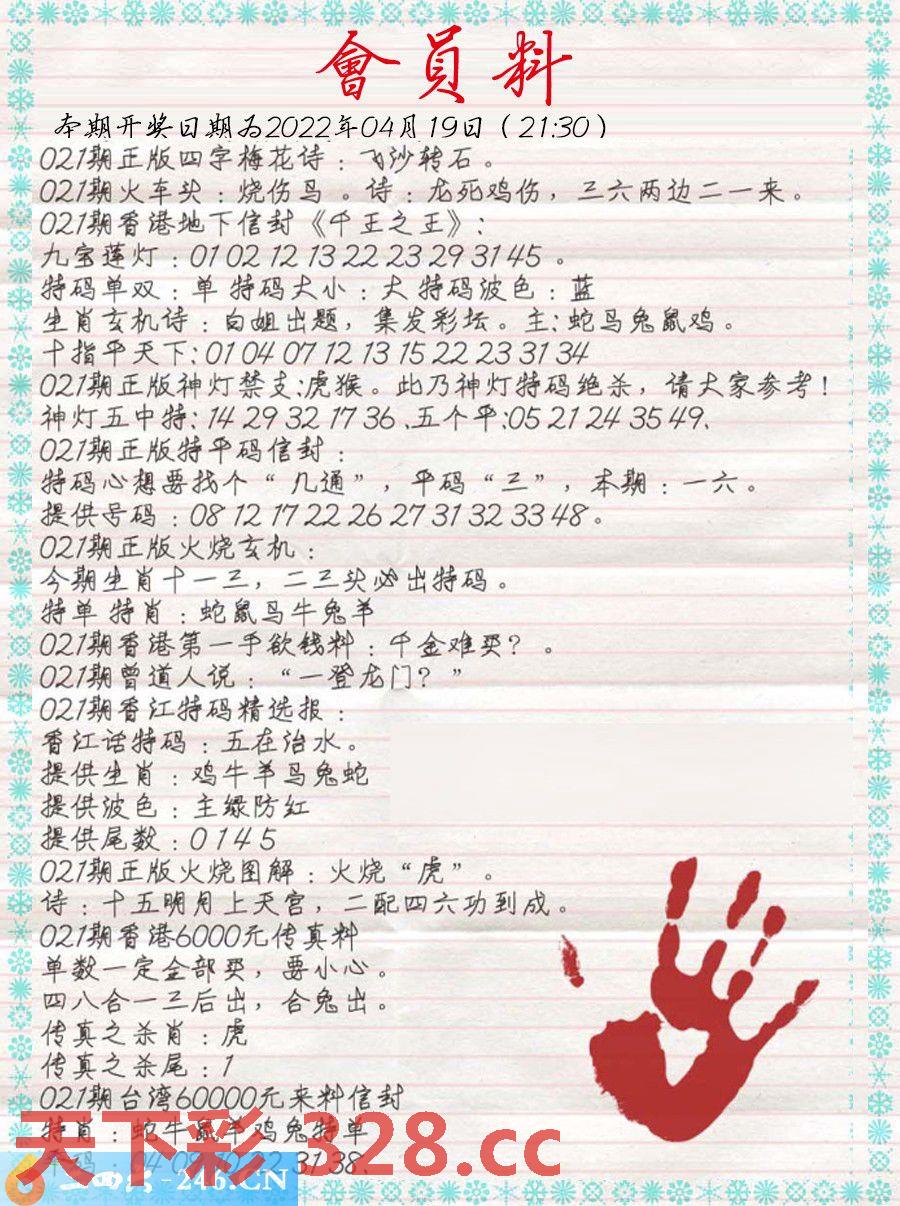 會員料
本期开奖日期为2022年04月19日（21:30）
021期正版四字梅花诗：飞沙转石。
021期火车头：烧伤鸟。诗：龙死鸡伤，三六两边二一来。
021期香港地下信封《千王之王》：
九宝莲灯：01 02 12 13 22 23 29 31 45 。
特码单双：单 特码大小：大 特码波色：蓝
生肖玄机诗：白姐出题，集发彩坛。主:蛇鸟兔鼠鸡。
十指平天下:01 04 07 12 13 15 22 23 31 34
021期正版神灯禁支:虎猴。此乃神灯特码绝杀，请大家参考！
神灯五中特: 14 29 32 17 36 、五个平:05 21 24 35 49、
021期正版特平码信封：
特码心想要找个“几通”，平码“三”，本期：一六。
提供号码：08 12 17 22 26 27 31 32 33 48。
021期正版火烧玄机：
今期生肖十一三，二三头必出特码。
特单 特肖：蛇鼠马牛兔羊
021期香港第一手欲钱料：千金难买？。
021期曾道人说：“一登龙门？”
021期香江特码精选报：
香江话特码：五在治水。
提供生肖：鸡牛羊马兔蛇
提供波色：主绿防红
提供尾数：0 1 4 5
021期正版火烧图解：火烧“虎”。
诗：十五明月上天宫，二配四六功到成。
021期香港6000元传真料
单数一定全部买，要小心。
四八合一三后出，合兔出。
传真之杀肖：虎
传真之杀尾：1
021期台湾60000元来料信封
特肖：蛇牛鼠羊鸡兔特单
31 38、
天下彩 328.cc
-246.CN